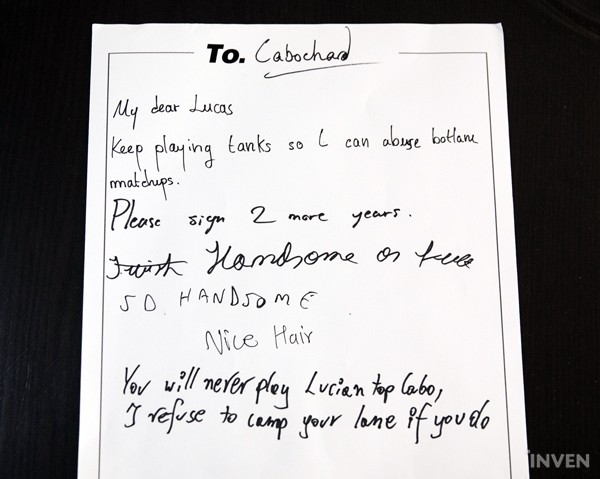 To. Cabochard
My dear Lucas
Keep playing tanks so I can abuse botlane
matchups.
Please sign 2 more years.
Handsome as
SO HANDSOME
Nice Hair
You will never play Lucian top Cabo,
I refuse to camp your lane if you do
INVEN